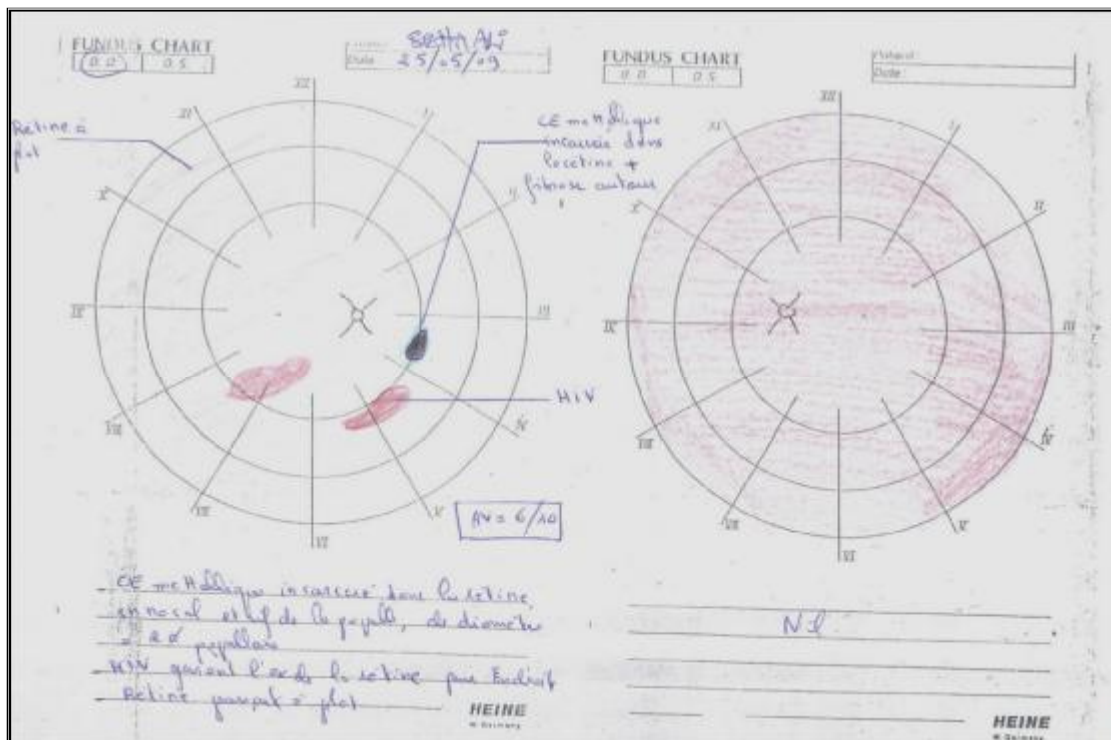 FUNDUS CHART
O.D O.S
SBHA ALI
Date: 25/05/09
Rétine à
plat
CE métallique
incarcéré dans
la rétine +
fibrose autour
XII
I
II
III
IV
V
VI
VII
VIII
IX
X
XI
HIV
AV = 6/10
CE métallique incarcéré dans la rétine
en nasal et inf de la papille, de diamètre
= 2 Ø papillaire
HIV l'ex de la rétine
Rétine à plat
HEINE
W. Germany
FUNDUS CHART
O.D O.S
Patient:
Date:
XII
I
II
III
IV
V
VI
VII
VIII
IX
X
XI
Nl.
HEINE
W. Germany